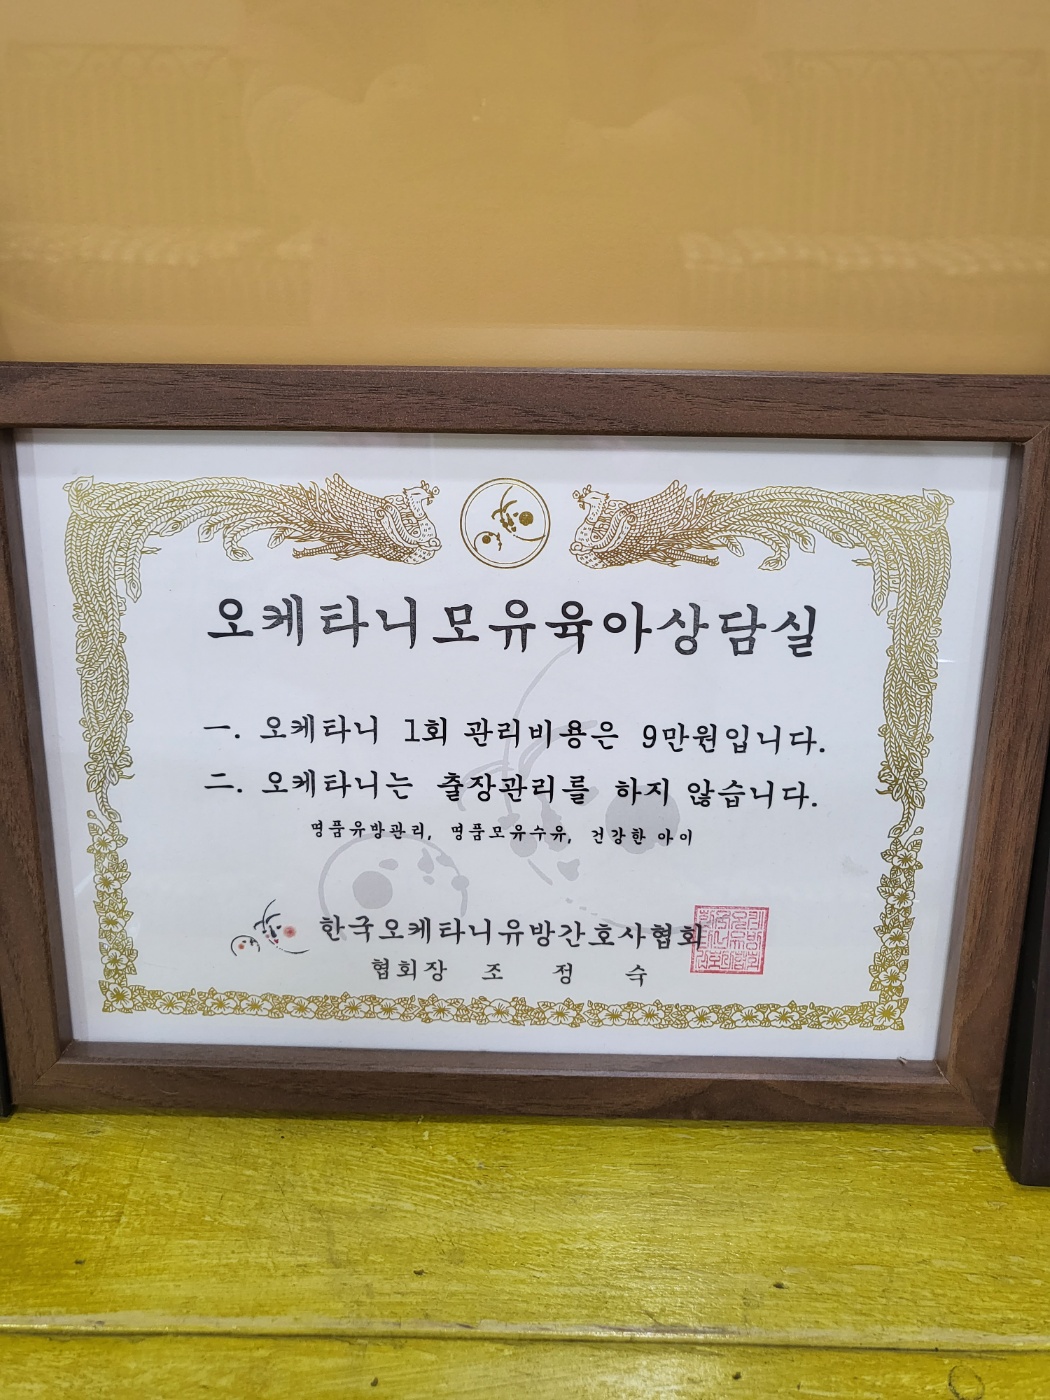 오케타니모유육아상담실
一. 오케타니 1회 관리비용은 9만원입니다.
二. 오케타니는 출장관리를 하지 않습니다.
명품유방관리, 명품모유수유, 건강한 아이
한국오케타니유방간호사협회
협회장 조 정 숙